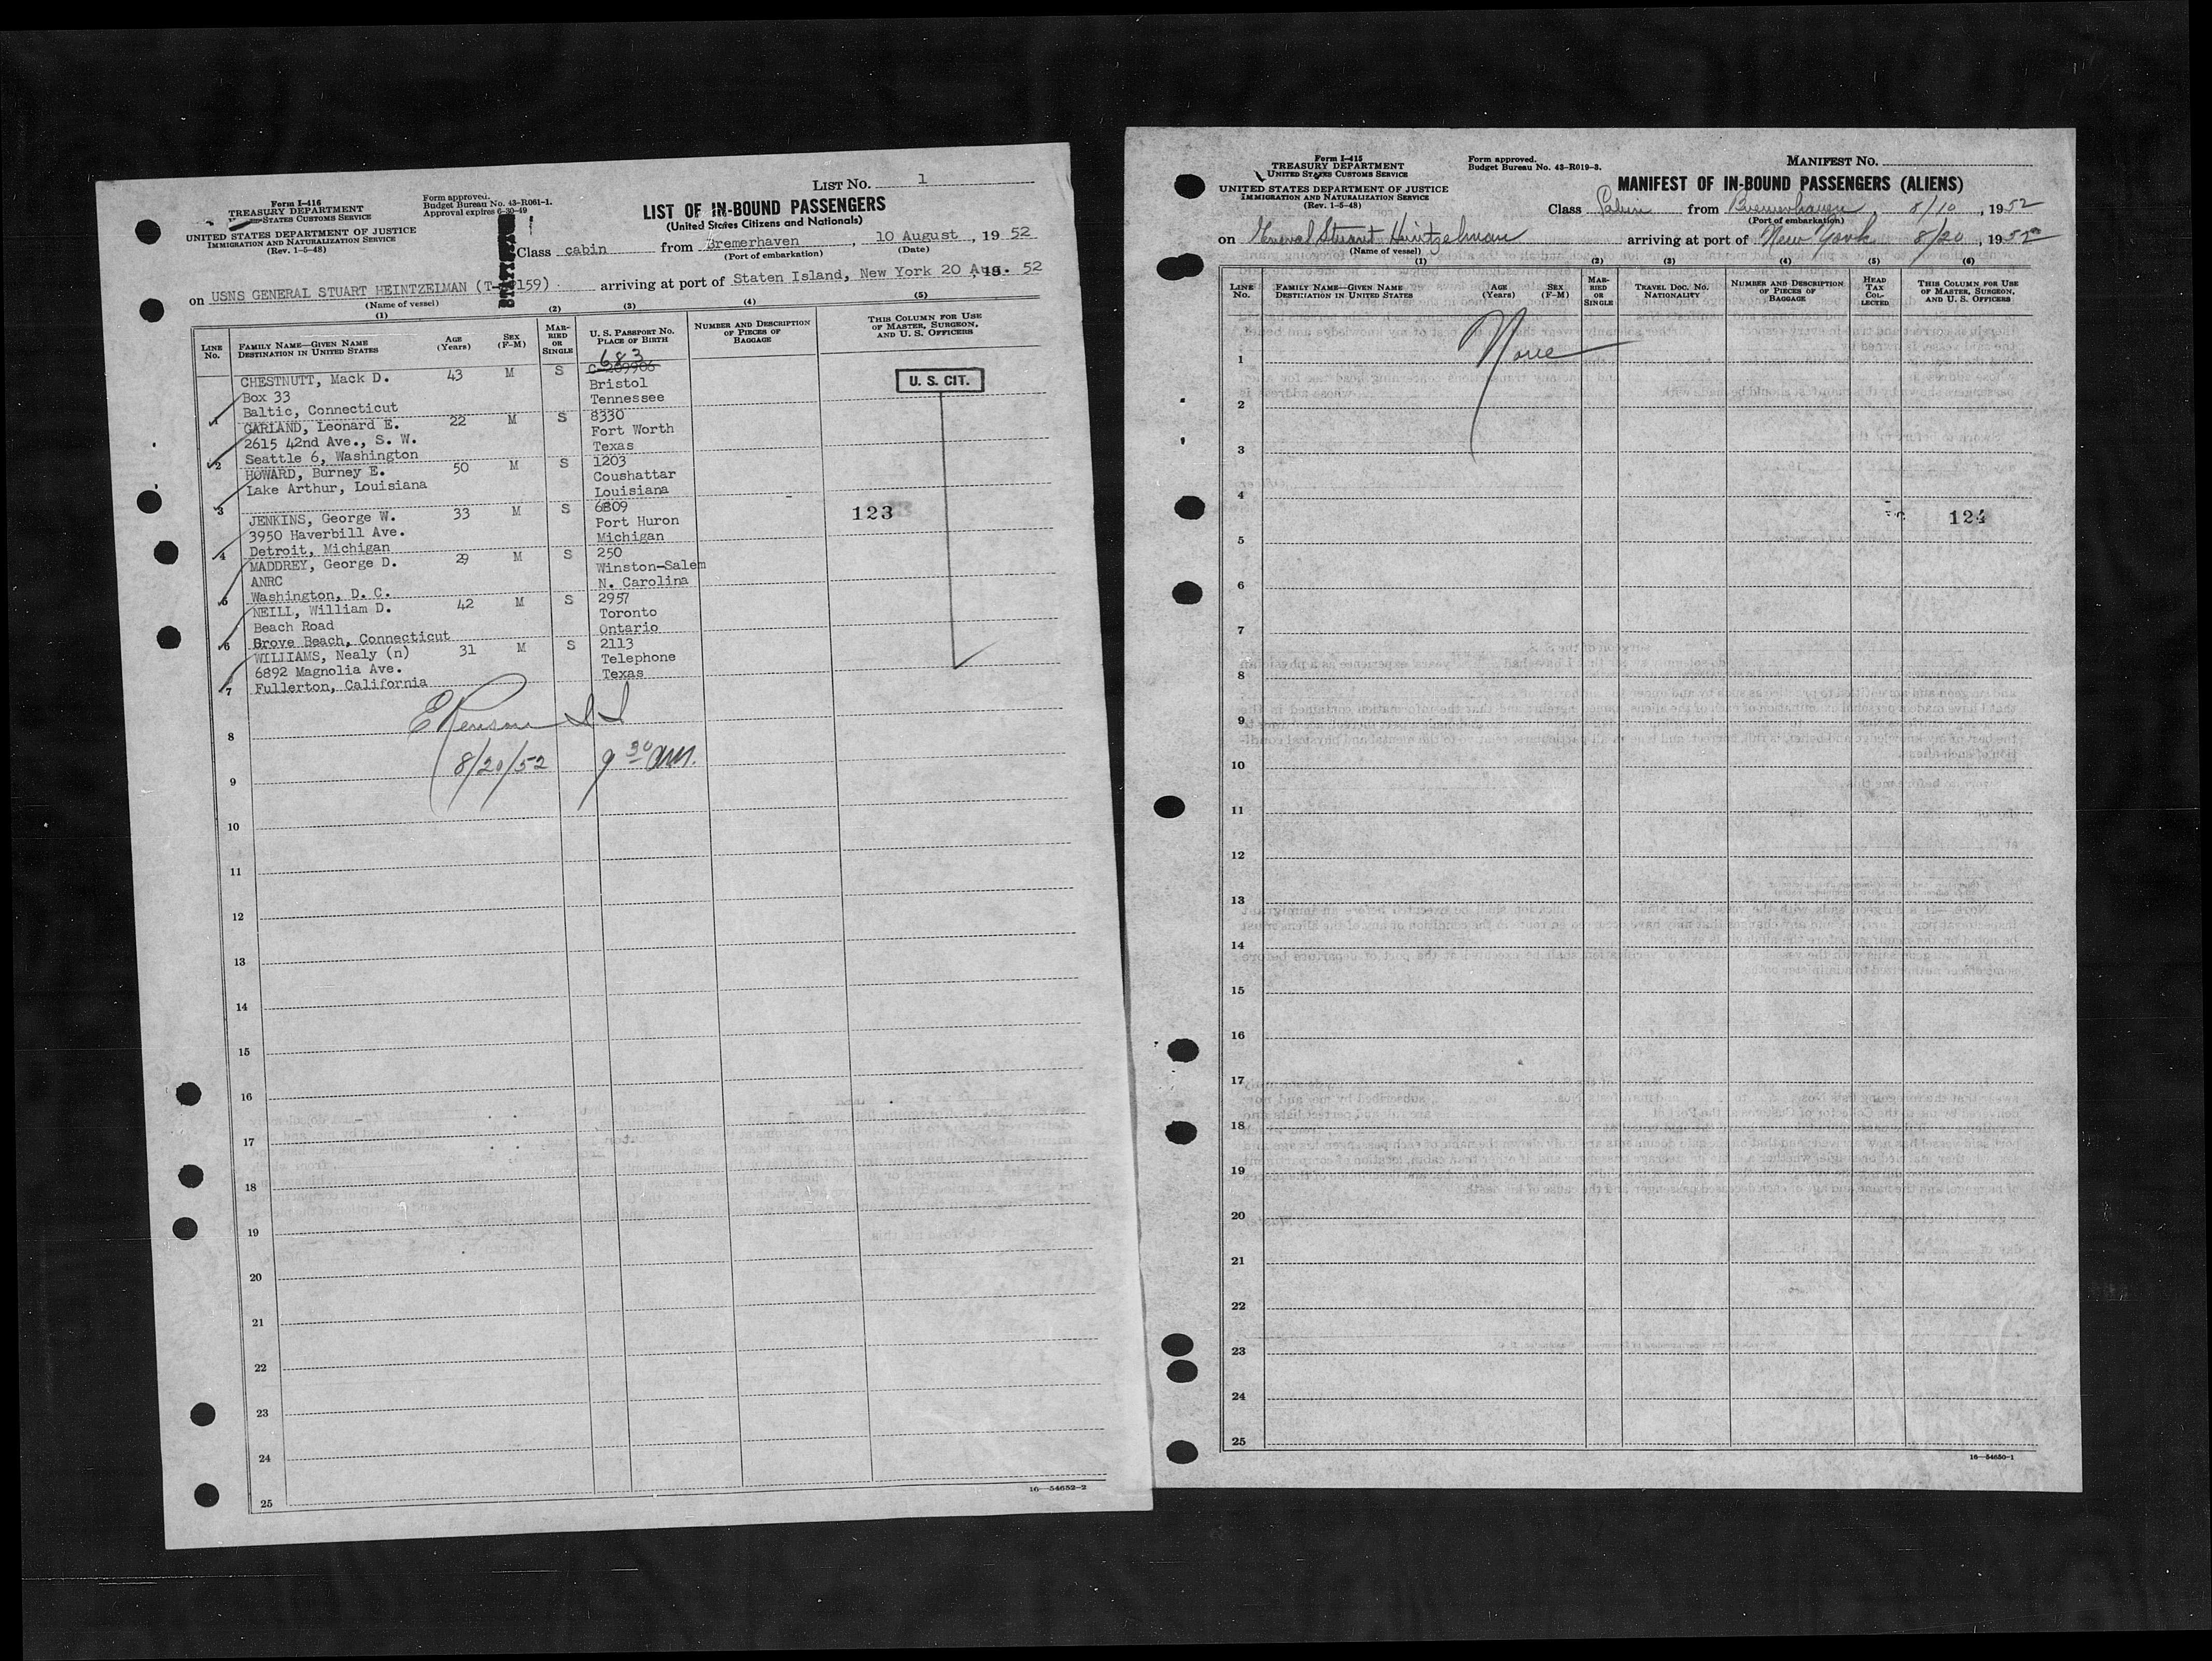 LIST NO. 1
Form I-416
TREASURY DEPARTMENT
UNITED STATES CUSTOMS SERVICE
UNITED STATES DEPARTMENT OF JUSTICE
IMMIGRATION AND NATURALIZATION SERVICE
(Rev. 1-5-48)
Form approved.
Budget Bureau No. 43-R061-1.
Approval expires 6-30-49
LIST OF IN-BOUND PASSENGERS
(United States Citizens and Nationals)
Class cabin from Bremerhaven, 10 August, 19 52
(Port of embarkation) (Date)
on USNS GENERAL STUART HEINTZELMAN (T- 159) arriving at port of Staten Island, New York 20 Aug. 19 52
(Name of vessel)
(1) (2) (3) (4) (5)
LINE No. FAMILY NAME—GIVEN NAME DESTINATION IN UNITED STATES AGE (Years) SEX (F-M) MARRIED OR SINGLE U. S. PASSPORT NO. PLACE OF BIRTH NUMBER AND DESCRIPTION OF PIECES OF BAGGAGE THIS COLUMN FOR USE OF MASTER, SURGEON, AND U. S. OFFICERS
683
CHESTNUTT, Mack D. 43 M S C-269906
Box 33 Bristol U. S. CIT.
1 Baltic, Connecticut Tennessee
GARLAND, Leonard E. 22 M S 8330
2615 42nd Ave., S. W. Fort Worth
2 Seattle 6, Washington Texas
HOWARD, Burney E. 50 M S 1203
Lake Arthur, Louisiana Coushattar
3 Louisiana
JENKINS, George W. 33 M S 6809 123
3950 Haverbill Ave. Port Huron
4 Detroit, Michigan Michigan
MADDREY, George D. 29 M S 250
ANRC Winston-Salem
5 Washington, D. C. N. Carolina
NEILL, William D. 42 M S 2957
Beach Road Toronto
6 Grove Beach, Connecticut Ontario
WILLIAMS, Nealy (n) 31 M S 2113
6892 Magnolia Ave. Telephone
7 Fullerton, California Texas
8
8/20/52 9 30 am.
9
10
11
12
13
14
15
16
17
18
19
20
21
22
23
24
25
16—54652-2
Form I-415
TREASURY DEPARTMENT
UNITED STATES CUSTOMS SERVICE
UNITED STATES DEPARTMENT OF JUSTICE
IMMIGRATION AND NATURALIZATION SERVICE
(Rev. 1-5-48)
Form approved.
Budget Bureau No. 43-R019-3.
MANIFEST NO.
MANIFEST OF IN-BOUND PASSENGERS (ALIENS)
Class Cabin from Bremerhaven, 8/10, 1952
(Port of embarkation)
on General Stuart Heintzelman arriving at port of New York 8/20, 1952
(Name of vessel)
(1) (2) (3) (4) (5) (6)
LINE No. FAMILY NAME—GIVEN NAME DESTINATION IN UNITED STATES AGE (Years) SEX (F-M) MARRIED OR SINGLE TRAVEL DOC. NO. NATIONALITY NUMBER AND DESCRIPTION OF PIECES OF BAGGAGE HEAD TAX COLLECTED THIS COLUMN FOR USE OF MASTER, SURGEON, AND U. S. OFFICERS
1 None
2
3
4
124
5
6
7
8
9
10
11
12
13
14
15
16
17
18
19
20
21
22
23
24
25
16—54650-1